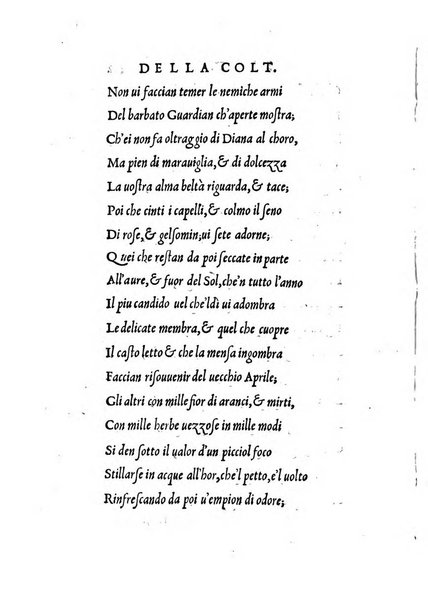 DELLA COLT.
Non ui faccian temer le nemiche armi
Del barbato Guardian ch'aperte moſtra;
Ch'ei non fa oltraggio di Diana al choro,
Ma pien di marauiglia, & di dolcezza
La uoſtra alma beltà riguarda, & tace;
Poi che cinti i capelli, & colmo il ſeno
Di roſe, & gelſomin; ui ſete adorne;
Quei che reſtan da poi ſeccate in parte
All'aure, & fuor del Sol, che'n tutto l'anno
Il piu candido uel che'ldì ui adombra
Le delicate membra, & quel che cuopre
Il caſto letto & che la menſa ingombra
Faccian riſouuenir del uecchio Aprile;
Gli altri con mille fior di aranci, & mirti,
Con mille herbe uezzoſe in mille modi
Si den ſotto il ualor d'un picciol foco
Stillarſe in acque all'hor, che'l petto, e'l uolto
Rinfreſcando da poi u'empion di odore;